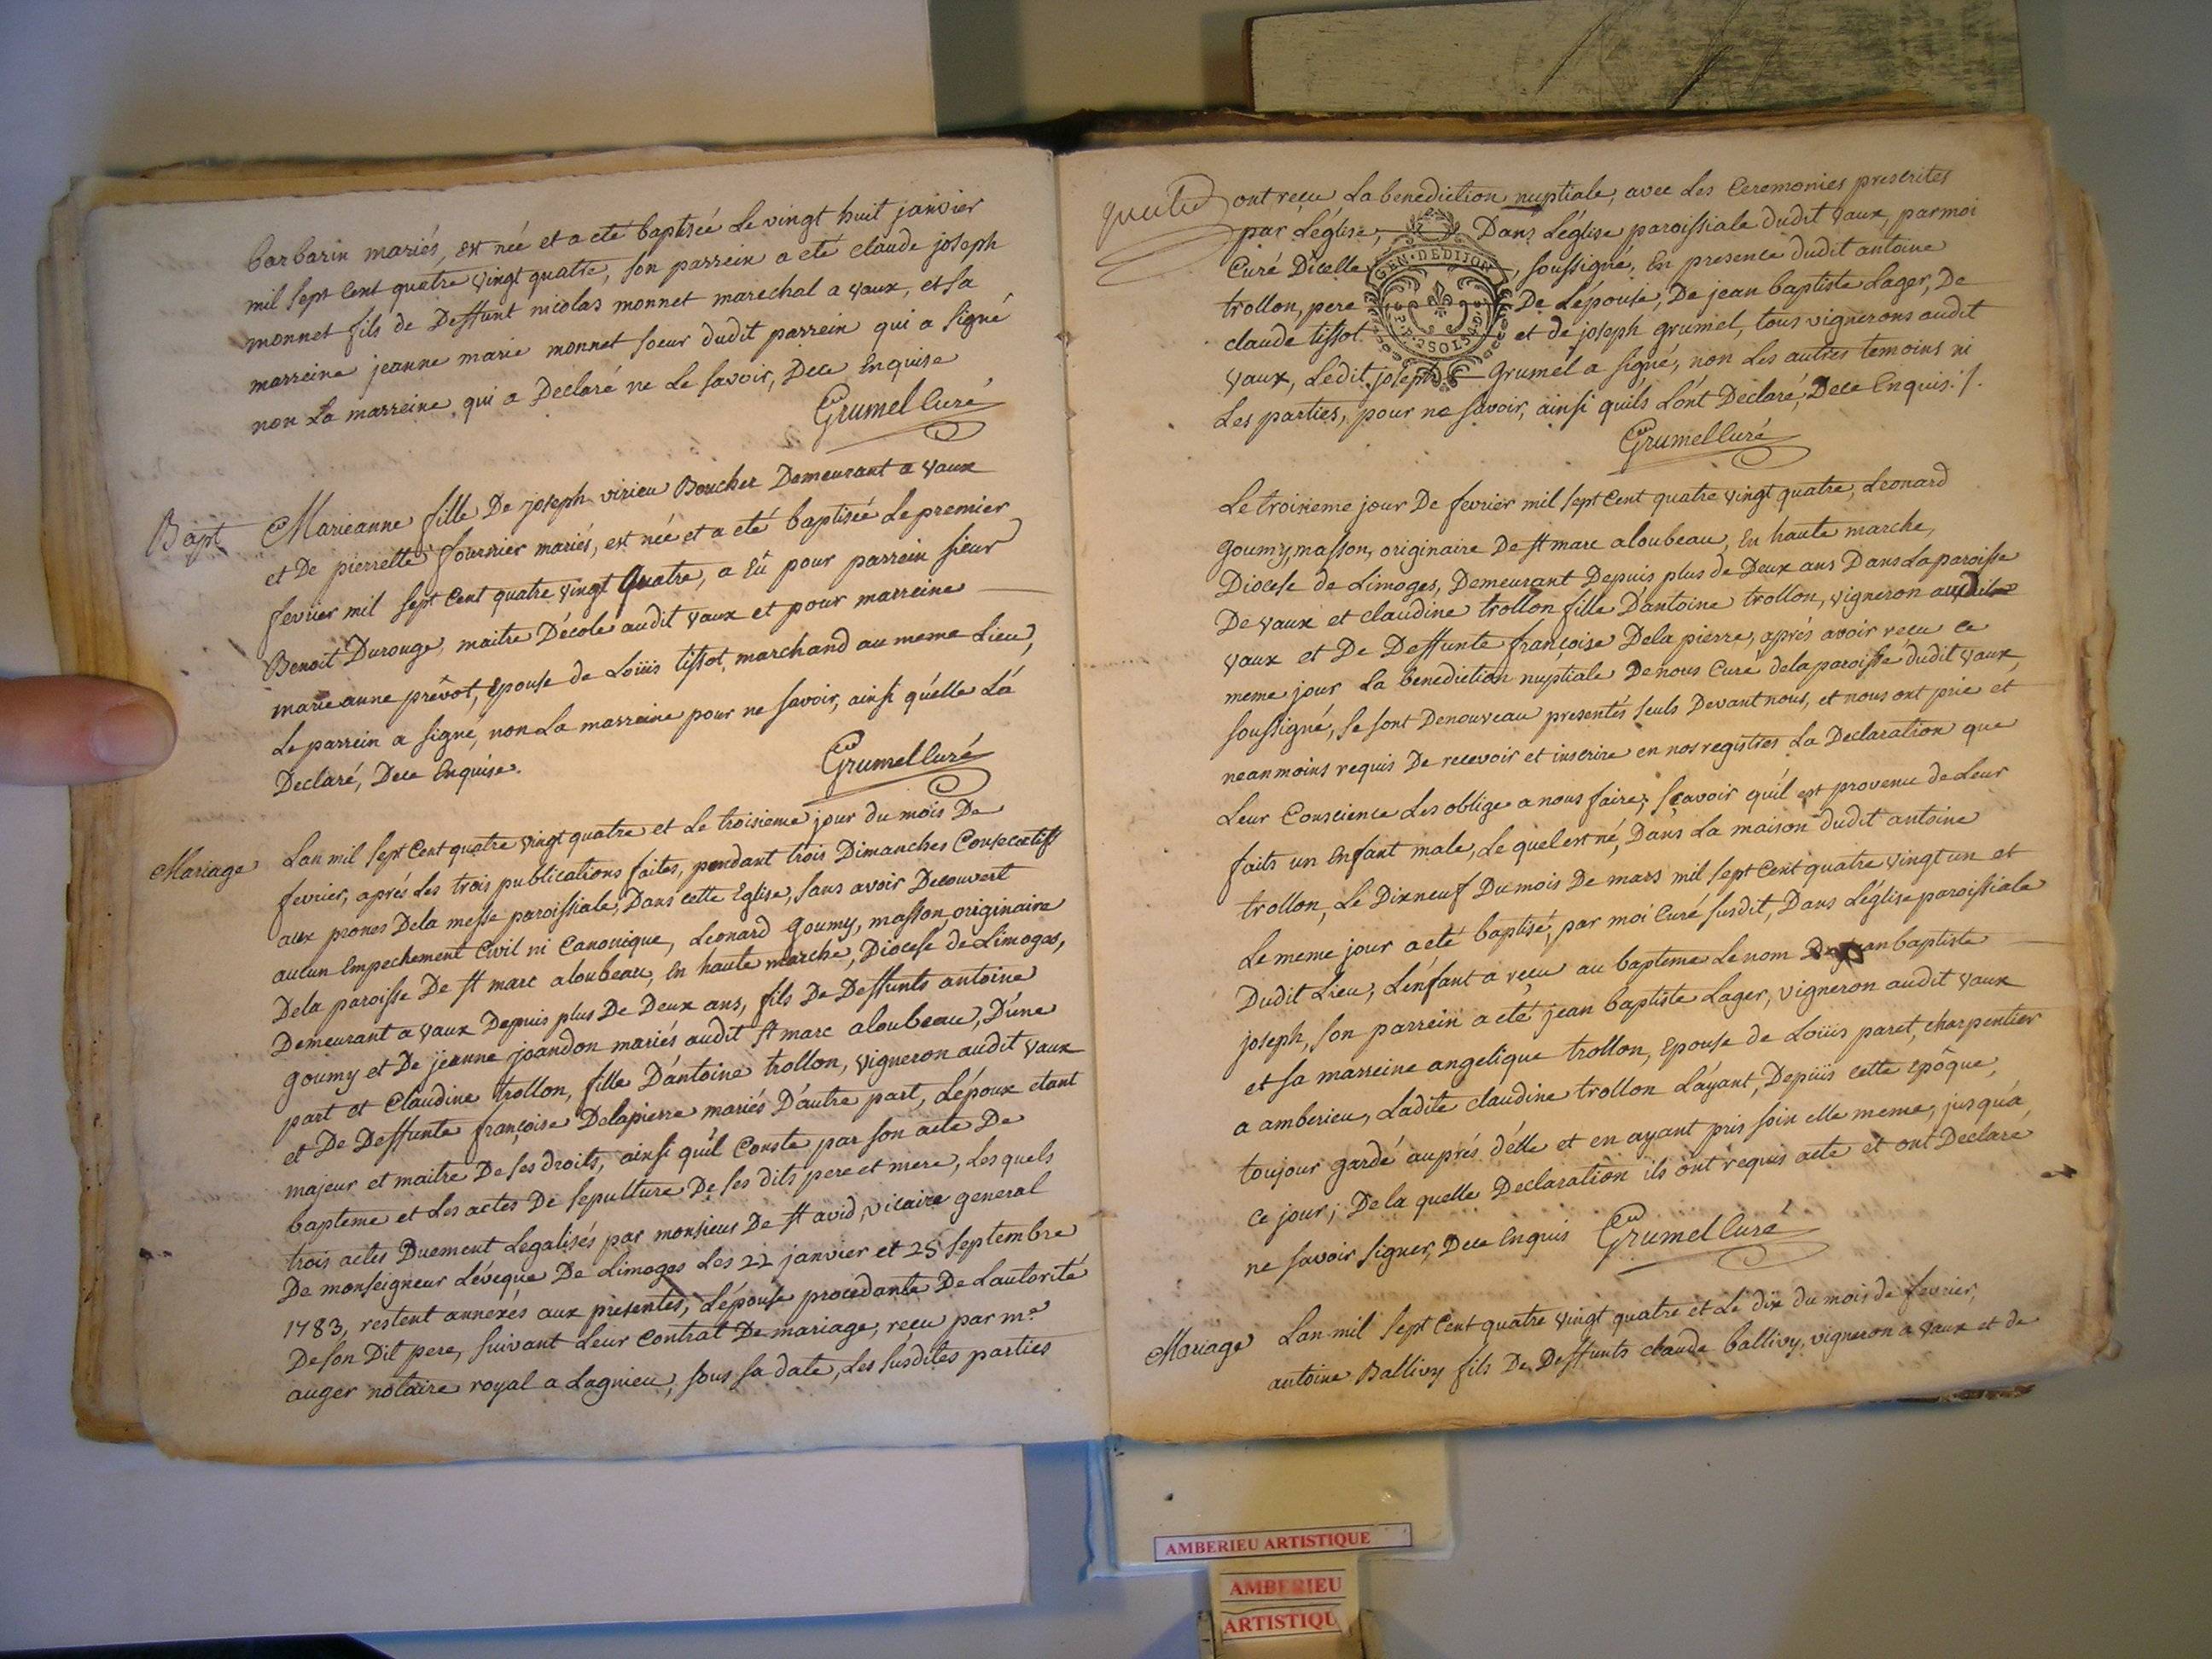 barbarin mariés, est née et a eté baptisée Le vingt huit janvier
mil sept Cent quatre vingt quatre, son parrein a eté claude joseph
monnet fils de Deffunt nicolas monnet marechal a vaux, et sa
marreine jeanne marie monnet soeur dudit parrein qui a signé
non La marreine qui a Declaré ne Le savoir, Dece Enquise
Grumel Curé
Bapt
Marieanne fille De joseph virieu Boucher Demeurant a vaux
et De pierrette fournier mariés, est née et a eté baptisée Le premier
fevrier mil sept Cent quatre vingt Quatre, a Eû pour parrein sieur
Benoit Durouge, maitre D'école audit vaux et pour marreine
marie anne prêvot, Epouse de Loüis tissot, marchand au meme Lieu,
Le parrein a signé, non La marreine pour ne savoir, ainsi qu'elle L'a
Declaré, Dece Enquise.
Grumel Curé
Mariage
Lan mil sept Cent quatre vingt quatre et Le troisieme jour du mois De
fevrier, aprés Les trois publications faites, pendant trois Dimanches Consecutifs
aux prones Dela messe paroissiale, Dans cette Eglise, sans avoir Decouvert
aucun Empechement Civil ni Canonique, Leonard Goumy, masson, originaire
Dela paroisse De st marc aloubeau, En haute marche, Diocese de Limoges,
Demeurant a vaux Depuis plus De Deux ans, fils De Deffunts antoine
Goumy et De jeanne joandon mariés audit st marc aloubeau, D'une
part et Claudine trollon, fille D'antoine trollon, vigneron audit vaux
et De Deffunte françoise Delapierre mariés D'autre part, L'époux etant
majeur et maitre De ses droits, ainsi qu'il Conste par son acte De
bapteme et Les actes De sepulture De ses dits pere et mere, Les quels
trois actes Duement Legalisés par monsieur De st avid, vicaire general
De monseigneur L'éveque De Limoges Les 22 janvier et 25 septembre
1783, restent annexés aux presentes, L'épouse procedante De L'autorité
De son Dit pere, suivant Leur Contrat De mariage, reçu par me.
auger notaire royal a Lagnieu, sous sa date, Les susdites parties
quatre
ont reçu La benediction nuptiale, avec Les Ceremonies prescrites
par L'église, Dans L'église paroissiale dudit vaux, par moi
Curé D'icelle, soussigné, En presence dudit antoine
trollon, pere De L'épouse, De jean baptiste Lager, De
claude tissot et de joseph Grumel, tous vignerons audit
vaux, Ledit joseph Grumel a signé, non Les autres temoins ni
Les parties, pour ne savoir, ainsi qu'ils L'ont Declaré, Dece Enquis./.
GEN. DE DIJON
Grumel Curé
Le troisieme jour De fevrier mil sept Cent quatre vingt quatre, Leonard
Goumy, masson, originaire De st marc aloubeau, En haute marche,
Diocese de Limoges, Demeurant Depuis plus de Deux ans Dans La paroisse
De vaux et claudine trollon fille D'antoine trollon, vigneron audit
vaux et De Deffunte françoise Dela pierre, aprés avoir reçu ce
meme jour La benediction nuptiale De nous Curé dela paroisse dudit vaux,
soussigné, se sont Denouveau presentés seuls Devant nous, et nous ont prie et
neanmoins requis De recevoir et inscrire en nos registres La Declaration que
Leur Conscience Les oblige a nous faire; sçavoir qu'il est provenu de Leur
faits un Enfant male, Le quel est né, Dans La maison dudit antoine
trollon, Le Dixneuf Du mois De mars mil sept Cent quatre vingt un et
Le meme jour a eté baptisé, par moi Curé susdit, Dans L'église paroissiale
Dudit Lieu, L'enfant a reçu au bapteme Le nom De jean baptiste
joseph, son parrein a eté jean baptiste Lager, vigneron audit vaux
et sa marreine angelique trollon, Epouse de Loüis paret, charpentier
a amberieu, Ladite claudine trollon L'ayant, Depuis cette époque,
toujour gardé auprés d'elle et en ayant pris soin elle meme, jusqu'a
ce jour; De la quelle Declaration ils ont requis acte et ont Declaré
ne savoir signer, Dece Enquis Grumel Curé
Mariage
Lan mil sept Cent quatre vingt quatre et Le dix du mois de fevrier,
antoine Ballivy fils De Deffunts claude ballivy, vigneron a vaux et de
AMBERIEU ARTISTIQUE
AMBERIEU
ARTISTIQU